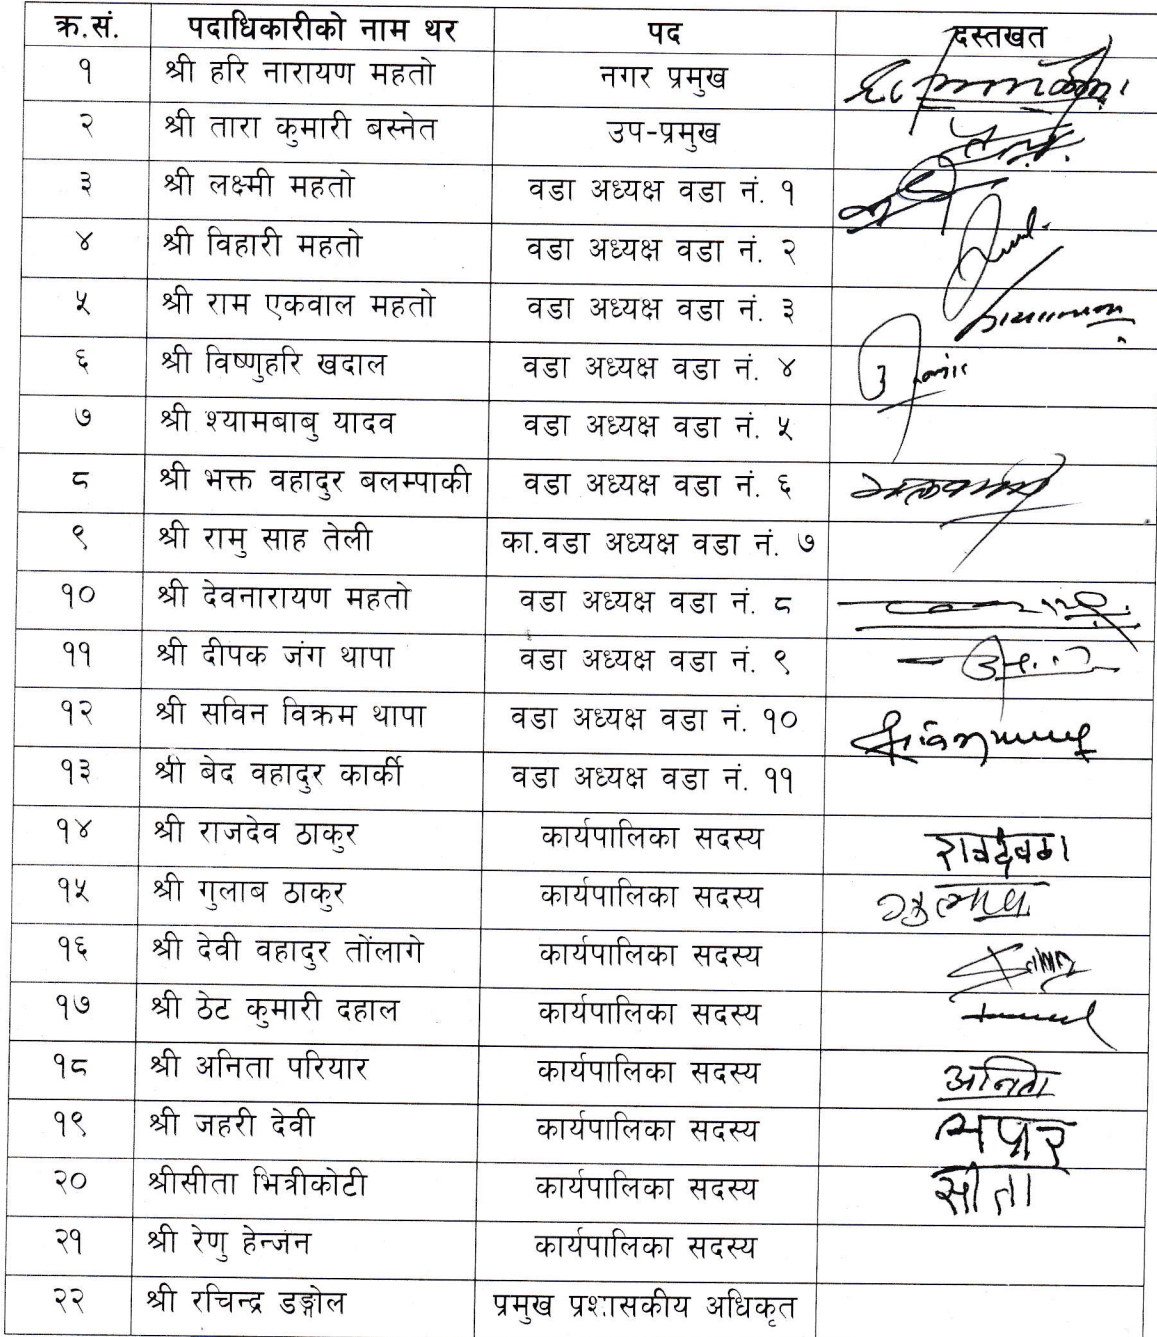 क्र.सं. पदाधिकारीको नाम थर पद दस्तखत
१ श्री हरि नारायण महतो नगर प्रमुख
२ श्री तारा कुमारी बस्नेत उप-प्रमुख
३ श्री लक्ष्मी महतो वडा अध्यक्ष वडा नं. १
४ श्री विहारी महतो वडा अध्यक्ष वडा नं. २
५ श्री राम एकवाल महतो वडा अध्यक्ष वडा नं. ३
६ श्री विष्णुहरि खदाल वडा अध्यक्ष वडा नं. ४
७ श्री श्यामबाबु यादव वडा अध्यक्ष वडा नं. ५
८ श्री भक्त वहादुर बलम्पाकी वडा अध्यक्ष वडा नं. ६
९ श्री रामु साह तेली का.वडा अध्यक्ष वडा नं. ७
१० श्री देवनारायण महतो वडा अध्यक्ष वडा नं. ८
११ श्री दीपक जंग थापा वडा अध्यक्ष वडा नं. ९
१२ श्री सविन विक्रम थापा वडा अध्यक्ष वडा नं. १०
१३ श्री बेद वहादुर कार्की वडा अध्यक्ष वडा नं. ११
१४ श्री राजदेव ठाकुर कार्यपालिका सदस्य
१५ श्री गुलाब ठाकुर कार्यपालिका सदस्य
१६ श्री देवी वहादुर तोंलागे कार्यपालिका सदस्य
१७ श्री ठेट कुमारी दहाल कार्यपालिका सदस्य
१८ श्री अनिता परियार कार्यपालिका सदस्य अनिता
१९ श्री जहरी देवी कार्यपालिका सदस्य
२० श्रीसीता भित्रीकोटी कार्यपालिका सदस्य सीता
२१ श्री रेणु हेन्जन कार्यपालिका सदस्य
२२ श्री रचिन्द्र डङ्गोल प्रमुख प्रशासकीय अधिकृत